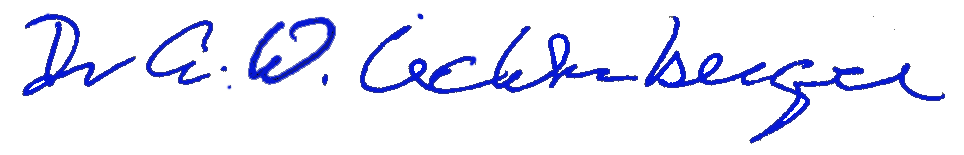 Dr A. W. Lichtenberger